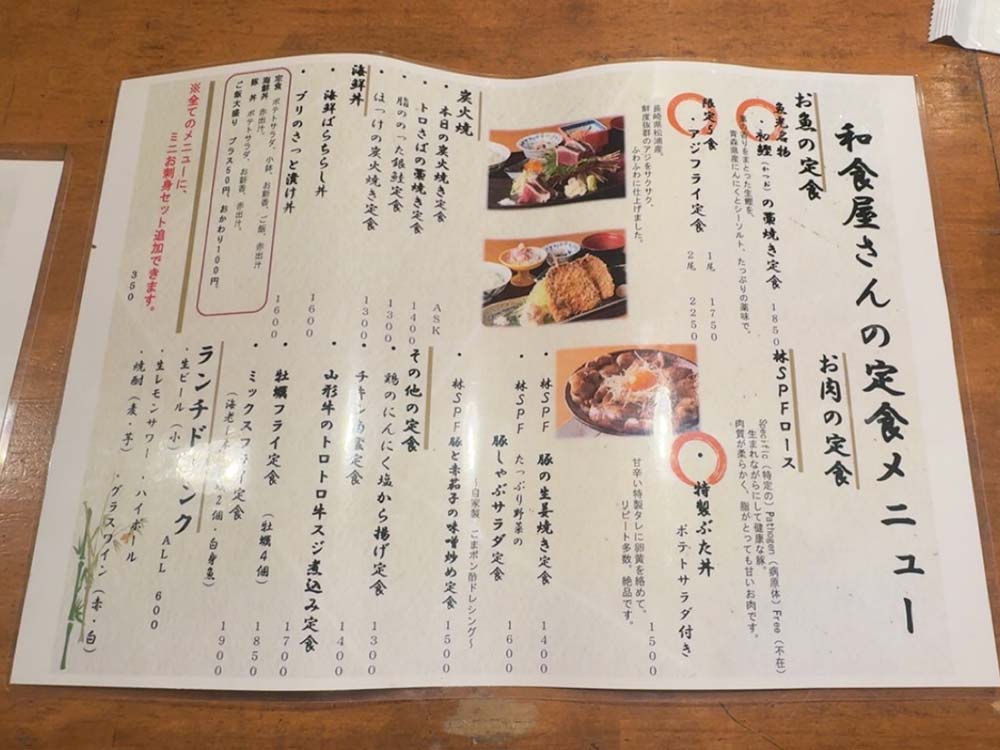 和食屋さんの定食メニュー
お魚の定食
魚光名物
・初鰹(かつお)の藁焼き定食 1850
藁の香りをまとった生鰹を、
青森県産にんにくとシーソルト、たっぷりの薬味で。
限定5食
・アジフライ定食 1尾 1750
2尾 2250
長崎県松浦産、
鮮度抜群のアジをサクサク、
ふわふわに仕上げました。
炭火焼
・本日の炭火焼き定食 ASK
・トロさばの藁焼き定食 1400
・脂ののった銀鮭定食 1300
・ほっけの炭火焼き定食 1300
海鮮丼
・海鮮ばらちらし丼 1600
・ブリのさっと漬け丼 1600
定食 ポテトサラダ、小鉢、お新香、ご飯、赤出汁
海鮮丼 赤出汁、
豚丼 ポテトサラダ、お新香、赤出汁、
ご飯大盛り プラス50円、おかわり100円、
※全てのメニューに、
ミニお刺身セット追加できます。
350
お肉の定食
林SPFロース
Specific(特定の)Pathogen(病原体)Free(不在)
生まれながらにして健康な豚。
肉質が柔らかく、脂がとっても甘いお肉です。
・特製ぶた丼
ポテトサラダ付き 1500
甘辛い特製タレに卵黄を絡めて。
リピート多数。絶品です。
・林SPF 豚の生姜焼き定食 1400
・林SPF たっぷり野菜の
豚しゃぶサラダ定食 1600
~自家製 ごまポン酢ドレッシング~
・林SPF豚と赤茄子の味噌炒め定食 1500
その他の定食
・鶏のにんにく塩から揚げ定食 1300
・チキン南蛮定食 1400
・山形牛のトロトロ牛スジ煮込み定食 1700
・牡蠣フライ定食 (牡蠣4個) 1850
・ミックスフライ定食 1900
2個・白身魚)
ランチドリンク ALL 600
・生ビール(小)
・生レモンサワー ・ハイボール
・焼酎(麦・芋) ・グラスワイン(赤・白)